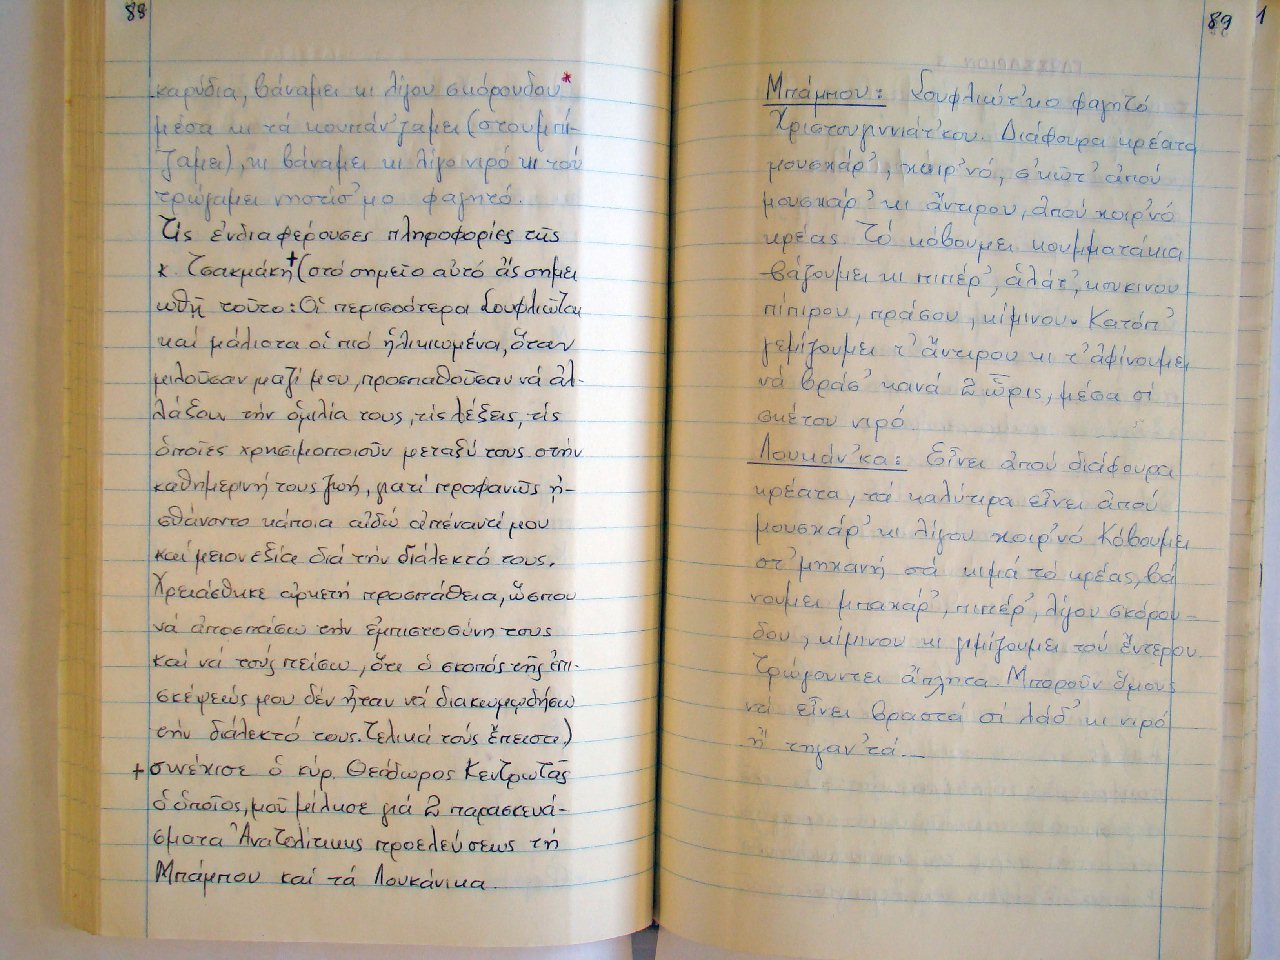 88
καρύδια, βάναμει κι λίγου σκόρουδου*
μέσα κι τά κουπάν'ζαμει (στουμπί-
ζαμει), κι βάναμει κι λίγο νιρό κι τού
τρώγαμει νηστίσ'μο φαγητό.
Τίς ἐνδιαφέρουσες πληροφορίες τῆς
κ. Τσακμάκη + (στό σημεῖο αὐτό ἄς σημει
ωθῆ τοῦτο: Οἱ περισσότεροι Σουφλιῶται
καί μάλιστα οἱ πιό ἡλικιωμένοι, ὅταν
μιλοῦσαν μαζί μου, προσπαθοῦσαν νά ἀλ-
λάξουν τήν ὁμιλία τους, τίς λέξεις, τίς
ὁποῖες χρησιμοποιοῦν μεταξύ τους στήν
καθημερινή τους ζωή, γιατί προφανῶς ᾐ-
σθάνοντο κάποια αἰδώ ἀπέναντί μου
καί μειονεξία διά τήν διάλεκτό τους.
Χρειάσθηκε ἀρκετή προσπάθεια, ὥσπου
νά ἀποσπάσω τήν ἐμπιστοσύνη τους
καί νά τούς πείσω, ὅτι ὁ σκοπός τῆς ἐπι-
σκέψεώς μου δέν ἦταν νά διακωμῳδήσω
τήν διάλεκτό τους. Τελικά τούς ἔπεισα)
+ συνέχισε ὁ κύρ. Θεόδωρος Κεντρωτᾶς
ὁ ὁποῖος, μοῦ μίλησε γιά 2 παρασκευά-
σματα Ἀνατολίτικης προελεύσεως τή
Μπάμπου καί τά Λουκάνικα.
89 1
Μπάμπου: Σουφλιώτ'κο φαγητό
Χριστουγιννιάτ'κου. Διάφουρα κρέατα
μουσκάρ', χοιρ'νό, σ'κώτ' ἀπού
μουσκάρ' κι ἄντιρου, ἀπού χοιρ'νό
κρέας. Τό κόβουμει κουμματάκια
βάζουμει κι πιπέρ', ἁλάτ', κουκινου
πίπιρου, πράσου, κίμινου. Κατόπ'
γεμίζουμει τ' ἄντιρου κι τ' ἀφίνουμει
νά βράσ' κανά 2 ὧρις, μέσα σί
σκέτου νιρό
Λουκάν'κα: Εἶνει ἀπού διάφουρα
κρέατα, τά καλύτιρα εἶνει ἀπού
μουσκάρ' κι λίγου χοιρ'νό Κόβουμει
στ' μηχανή σά κιμά τό κρέας, βά
νουμει μπαχάρ', πιπέρ', λίγου σκόρου-
δου, κίμινου κι γιμίζουμει τού ἔντερου.
Τρώγουντει ἄπλητα. Μποροῦν ὅμους
νά εἶνει βραστά σί λάδ' κι νιρό
ἤ τηγαν'τά.